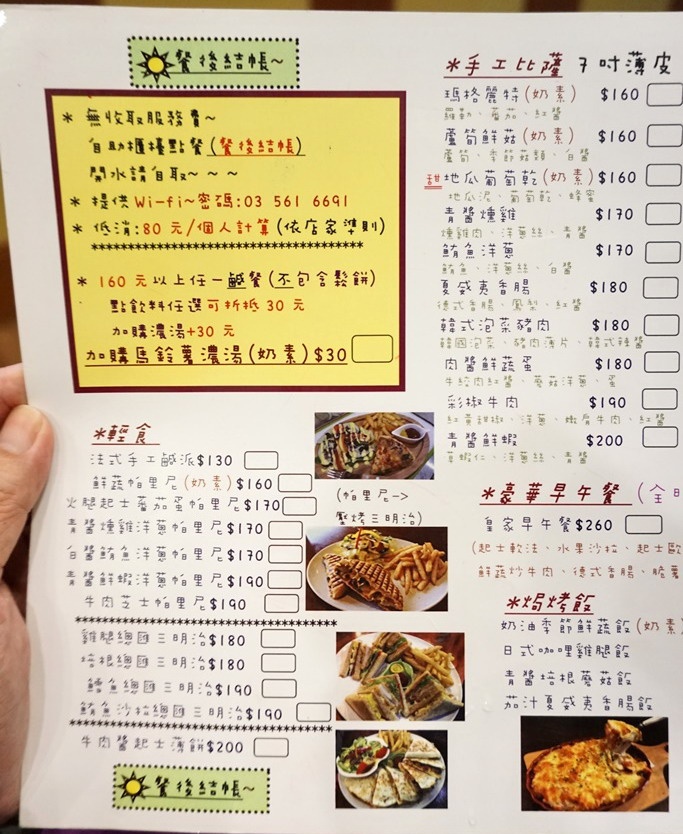 餐後結帳~
* 無收取服務費~
自助櫃檯點餐(餐後結帳)
開水請自取~~~
* 提供Wi-fi~密碼:03 561 6691
* 低消:80元/個人計算(依店家準則)
******************************
* 160元以上任一鹹餐(不包含鬆餅)
點飲料任選可折抵30元
加購濃湯+30元
加購馬鈴薯濃湯(奶素)$30
*輕食
法式手工鹹派$130
鮮蔬帕里尼(奶素)$160
火腿起士蕃茄蛋帕里尼$170
青醬燻雞洋蔥帕里尼$170
白醬鮪魚洋蔥帕里尼$170
青醬鮮蝦洋蔥帕里尼$190
牛肉芝士帕里尼$190
******************************
雞腿總匯三明治$180
培根總匯三明治$180
鱈魚總匯三明治$190
鮪魚沙拉總匯三明治$190
******************************
牛肉醬起士薄餅$200
餐後結帳~
(帕里尼->
壓烤三明治)
*手工比薩 7吋薄皮
瑪格麗特(奶素) $160
羅勒、蕃茄、紅醬
蘆筍鮮菇(奶素) $160
蘆筍、季節菇類、白醬
甜 地瓜葡萄乾(奶素) $160
地瓜泥、葡萄乾、蜂蜜
青醬燻雞 $170
燻雞肉、洋蔥絲、青醬
鮪魚洋蔥 $170
鮪魚、洋蔥絲、白醬
夏威夷香腸 $180
德式香腸、鳳梨、紅醬
韓式泡菜豬肉 $180
韓國泡菜、豬肉薄片、韓式辣醬
肉醬鮮蔬蛋 $180
牛絞肉紅醬、蘑菇洋蔥、蛋
彩椒牛肉 $190
紅黃甜椒、洋蔥、嫩肩牛肉、紅醬
青醬鮮蝦 $200
草蝦仁、洋蔥絲、青醬
*豪華早午餐 (全日
皇家早午餐$260
(起士軟法、水果沙拉、起士歐
鮮蔬炒牛肉、德式香腸、脆薯
*焗烤飯
奶油季節鮮蔬飯(奶素
日式咖哩雞腿飯
青醬培根蘑菇飯
茄汁夏威夷香腸飯